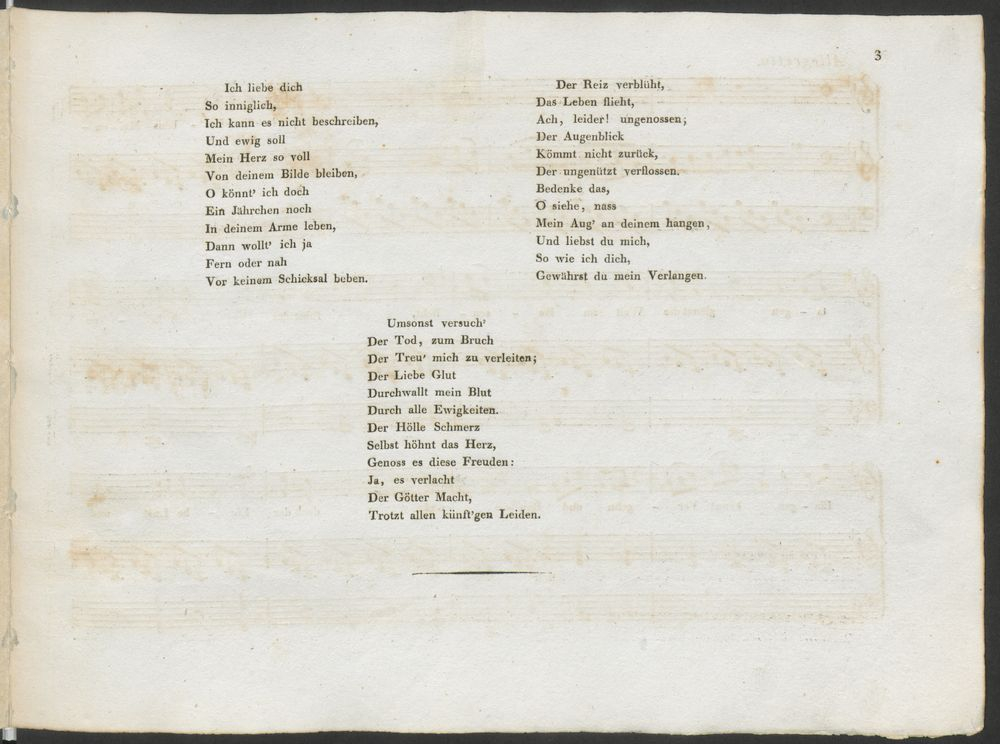 3
Ich liebe dich
So inniglich,
Ich kann es nicht beschreiben,
Und ewig soll
Mein Herz so voll
Von deinem Bilde bleiben,
O könnt' ich doch
Ein Jährchen noch
In deinem Arme leben,
Dann wollt' ich ja
Fern oder nah
Vor keinem Schicksal beben.
Der Reiz verblüht,
Das Leben flieht,
Ach, leider! ungenossen;
Der Augenblick
Kömmt nicht zurück,
Der ungenützt verflossen.
Bedenke das,
O siehe, nass
Mein Aug' an deinem hangen,
Und liebst du mich,
So wie ich dich,
Gewährst du mein Verlangen.
Umsonst versuch'
Der Tod, zum Bruch
Der Treu' mich zu verleiten;
Der Liebe Glut
Durchwallt mein Blut
Durch alle Ewigkeiten.
Der Hölle Schmerz
Selbst höhnt das Herz,
Genoss es diese Freuden:
Ja, es verlacht
Der Götter Macht,
Trotzt allen künft'gen Leiden.